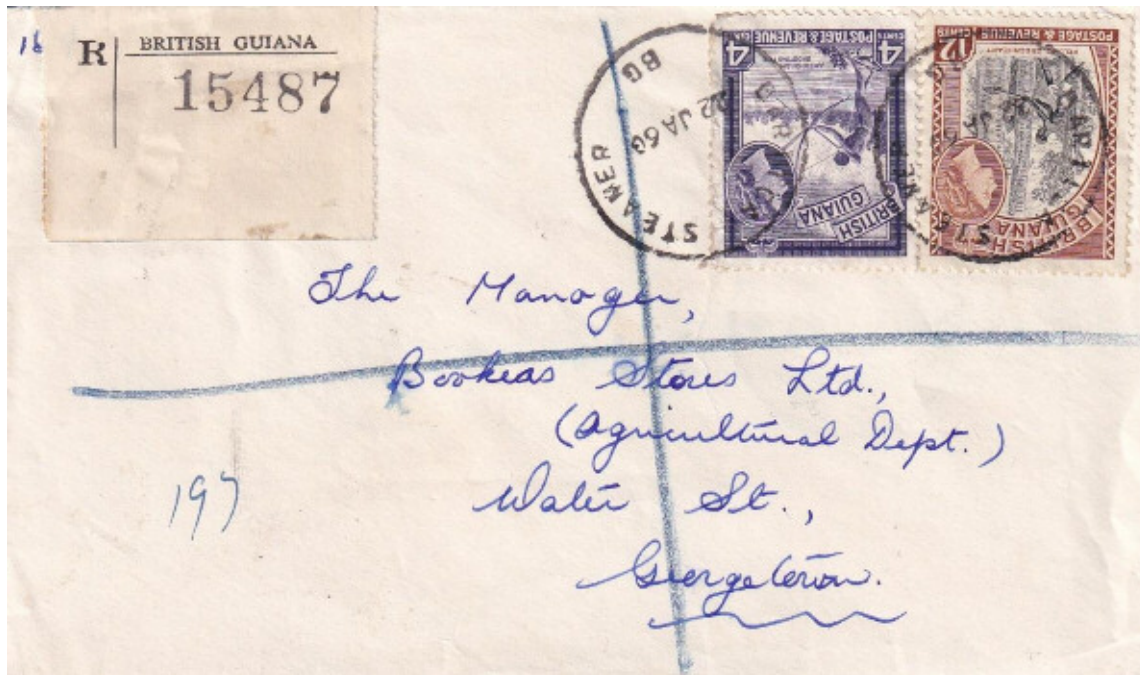 16
R BRITISH GUIANA
15487
BG
22 JA 60
STEAMER
4 CENTS POSTAGE & REVENUE 4
BRITISH
GUIANA
12 CENTS POSTAGE & REVENUE
BRITISH
GUIANA
STEAMER
JA
The Manager,
Bookers Stores Ltd.,
(Agricultural Dept.)
Water St.,
Georgetown.
197